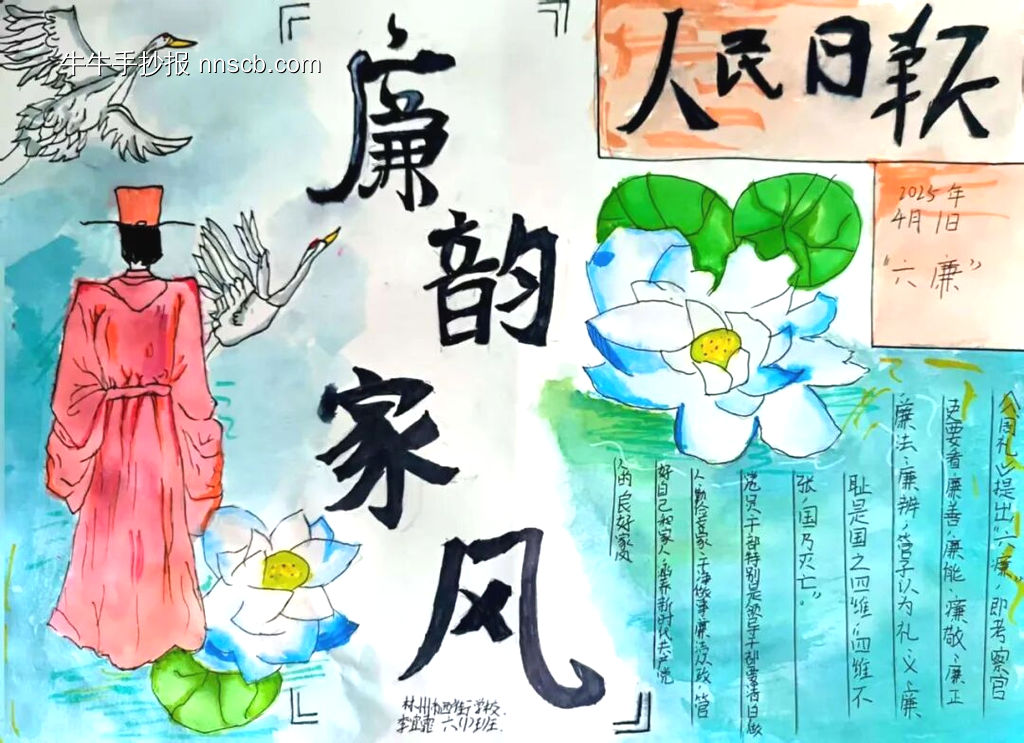 牛牛手抄报 nnscb.com
廉韵家风
人民日报
2025年
4月1日
“六廉”
《周礼》提出“六廉”,即考察官
吏要看廉善、廉能、廉敬、廉正
、廉法、廉辨,管子认为礼、义、廉
耻是国之四维,四维不
张,国乃灭亡。”
党员干部特别是领导干部要清白做
人、勤俭齐家、干净做事、廉洁从政,管
好自己和家人,涵养新时代共产党
人的良好家风
林州市 街学校
六(1)班